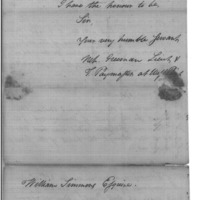 I have the honour to be,
Sir,
Your very humble Servant,
Wm. Freeman Lieut. &
Paymaster at
William Simmons Esquire.